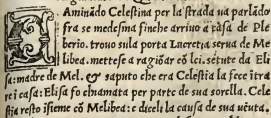 CAminãdo Celestina per la strada va parlãdo
fra se medesma finche arrivo a casa de Ple
berio. trovo su la porta Lucretia serua de Me
libea. mettese a ragiõar cõ lei. sẽtute da Eli
sa: madre de Mel. & saputo che era Celestia la fece ĩtra
re i casa: Elisa fo chiamata per parte de sua sorella. Cele
stia resto ĩsieme cõ Melibea: e diceli la causa de sua uẽuta.